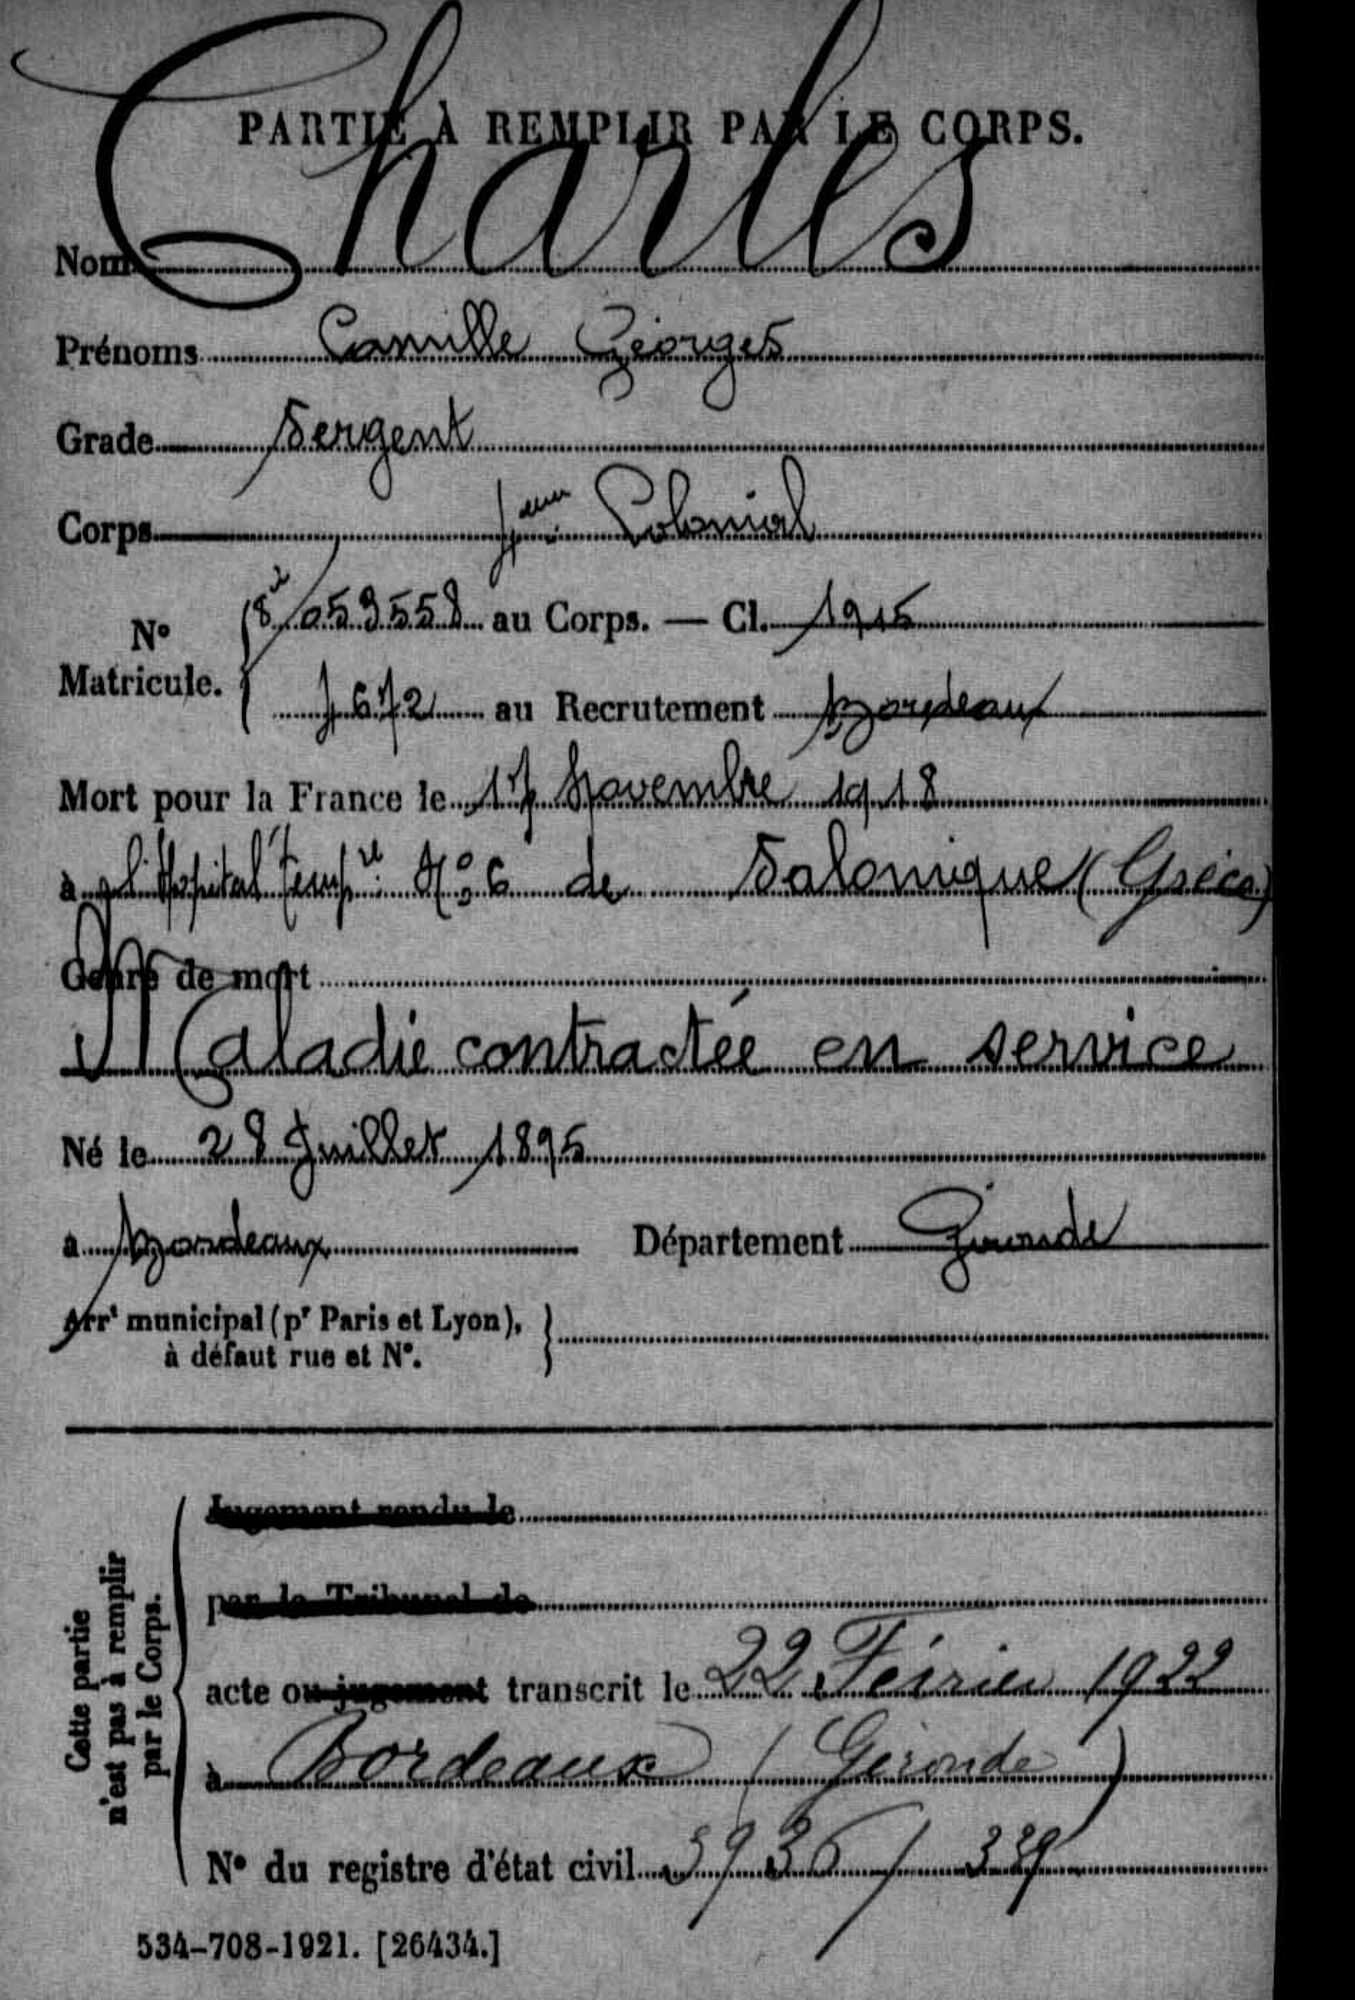 PARTIE À REMPLIR PAR LE CORPS.
Nom Charles
Prénoms Camille Georges
Grade Sergent
Corps Colonial
N° Matricule. 059558 au Corps. — Cl. 1915
au Recrutement Bordeaux
Mort pour la France le 17 Novembre 1918
à l'Hôpital Temp.re N° 6 de Salonique (Grèce)
Genre de mort
Maladie contractée en service
Né le 28 Juillet 1895
à Bordeaux Département Gironde
Arrt municipal (pr Paris et Lyon),
à défaut rue et N°.
Cette partie
n'est pas à remplir
par le Corps.
Jugement rendu le
par le Tribunal de
acte ou jugement transcrit le 22 Février 1922
à Bordeaux (Gironde)
N° du registre d'état civil
534-708-1921. [26434.]